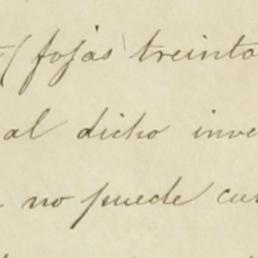 (fojas treinta
al dicho inve
no puede cu